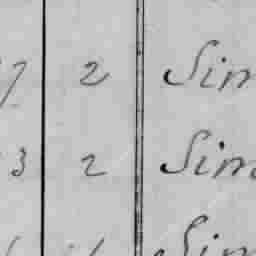 7 2 Sim
3 2 Sim
Sim